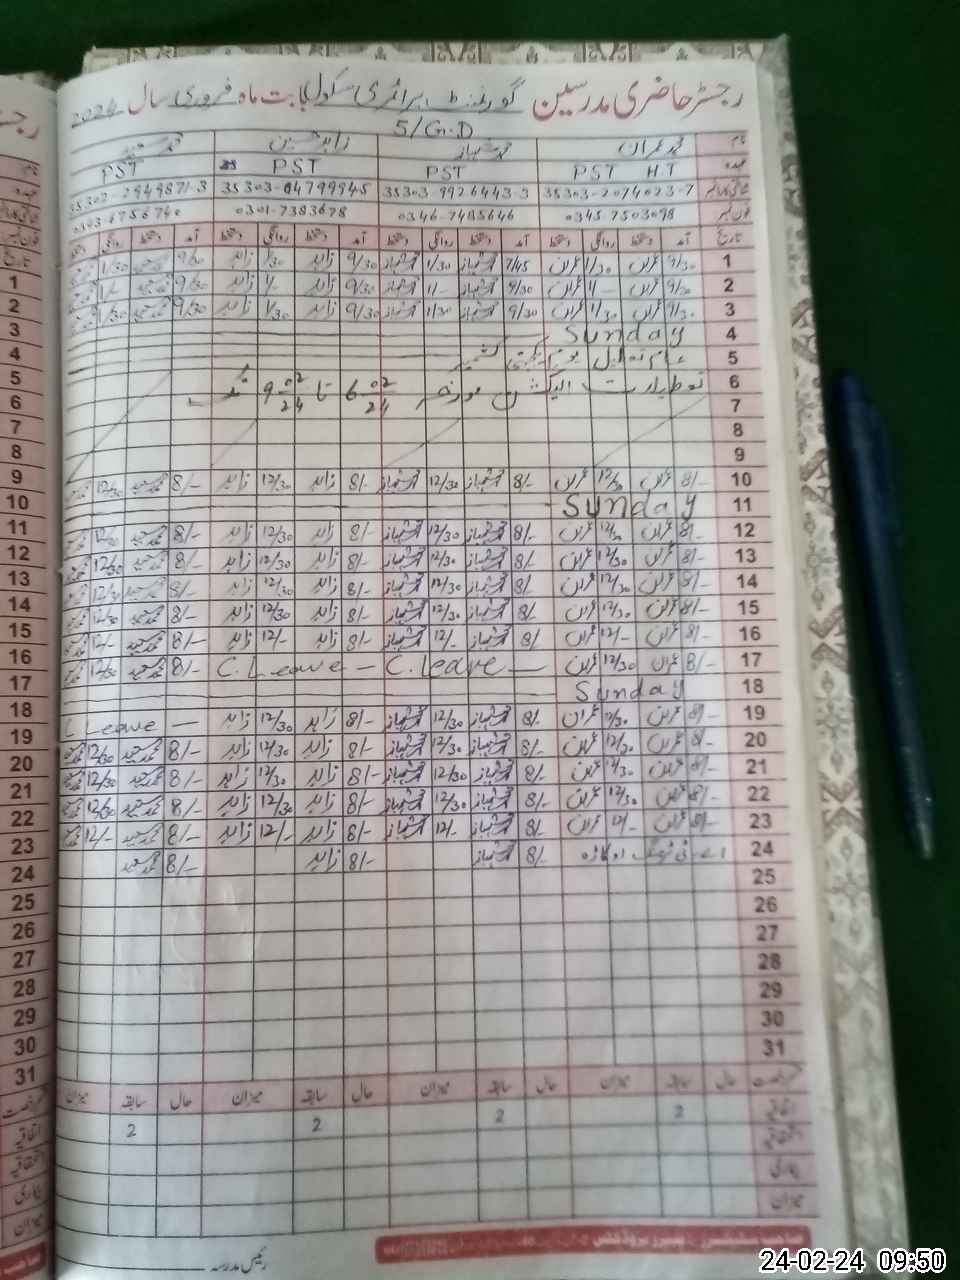 رجسٹر حاضری مدرسین گورنمنٹ پرائمری سکول بابت ماہ فروری سال 2024
5/G.D
نام محمد عمران محمد شہباز زاہد حسین محمد سعید
عہدہ PST H.T PST PST PST
شناختی کارڈ نمبر 35303-2074023-7 35303-9926443-3 35303-04799945 35302-2949871-3
فون نمبر 0345-7503098 0346-7485646 0301-7383678
تاریخ آمد دستخط روانگی دستخط آمد دستخط روانگی دستخط آمد دستخط روانگی دستخط آمد دستخط روانگی دستخط
1 9/30 عمران 1/30 عمران 7/45 شہباز 1/30 شہباز 9/30 زاہد 1/30 زاہد 9/30 محمد سعید 1/30
2 9/30 عمران 1/- عمران 9/30 شہباز 1/- شہباز 9/30 زاہد 1/- زاہد 9/30 محمد سعید 1/-
3 9/30 عمران 1/30 عمران 9/30 شہباز 1/30 شہباز 9/30 زاہد 1/30 زاہد 9/30 محمد سعید 1/30
4 Sunday
5 عام تعطیل یوم یکجہتی کشمیر
6 تعطیلات الیکشن مورخہ 6 02/24 تا 9 02/24 تک
7
8
9
10 8/- عمران 12/30 عمران 8/- شہباز 12/30 شہباز 8/- زاہد 12/30 زاہد 8/- محمد سعید 12/30
11 Sunday
12 8/- عمران 12/30 عمران 8/- شہباز 12/30 شہباز 8/- زاہد 12/30 زاہد 8/- محمد سعید 12/30
13 8/- عمران 12/30 عمران 8/- شہباز 12/30 شہباز 8/- زاہد 12/30 زاہد 8/- محمد سعید 12/30
14 8/- عمران 12/30 عمران 8/- شہباز 12/30 شہباز 8/- زاہد 12/30 زاہد 8/- محمد سعید 12/30
15 8/- عمران 12/30 عمران 8/- شہباز 12/30 شہباز 8/- زاہد 12/30 زاہد 8/- محمد سعید 12/-
16 8/- عمران 12/- عمران 8/- شہباز 12/- شہباز 8/- زاہد 12/- زاہد 8/- محمد سعید 12/-
17 8/- عمران 12/30 عمران C. Leave — C. Leave — 8/- محمد سعید 12/30
18 Sunday
19 8/- عمران 12/30 عمران 8/- شہباز 12/30 شہباز 8/- زاہد 12/30 زاہد C Leave —
20 8/- عمران 12/30 عمران 8/- شہباز 12/30 شہباز 8/- زاہد 12/30 زاہد 8/- محمد سعید 12/30
21 8/- عمران 12/30 عمران 8/- شہباز 12/30 شہباز 8/- زاہد 12/30 زاہد 8/- محمد سعید 12/30
22 8/- عمران 12/30 عمران 8/- شہباز 12/30 شہباز 8/- زاہد 12/30 زاہد 8/- محمد سعید 12/30
23 8/- عمران 12/- عمران 8/- شہباز 12/- شہباز 8/- زاہد 12/- زاہد 8/- محمد سعید 12/-
24 اوکاڑہ 8/- شہباز 8/- زاہد 8/- محمد سعید
25
26
27
28
29
30
31
حال سابقہ میزان حال سابقہ میزان حال سابقہ میزان حال سابقہ میزان
اتفاقیہ 2 2 2 2
بیماری
میزان
رئیس مدرسہ
24-02-24 09:50